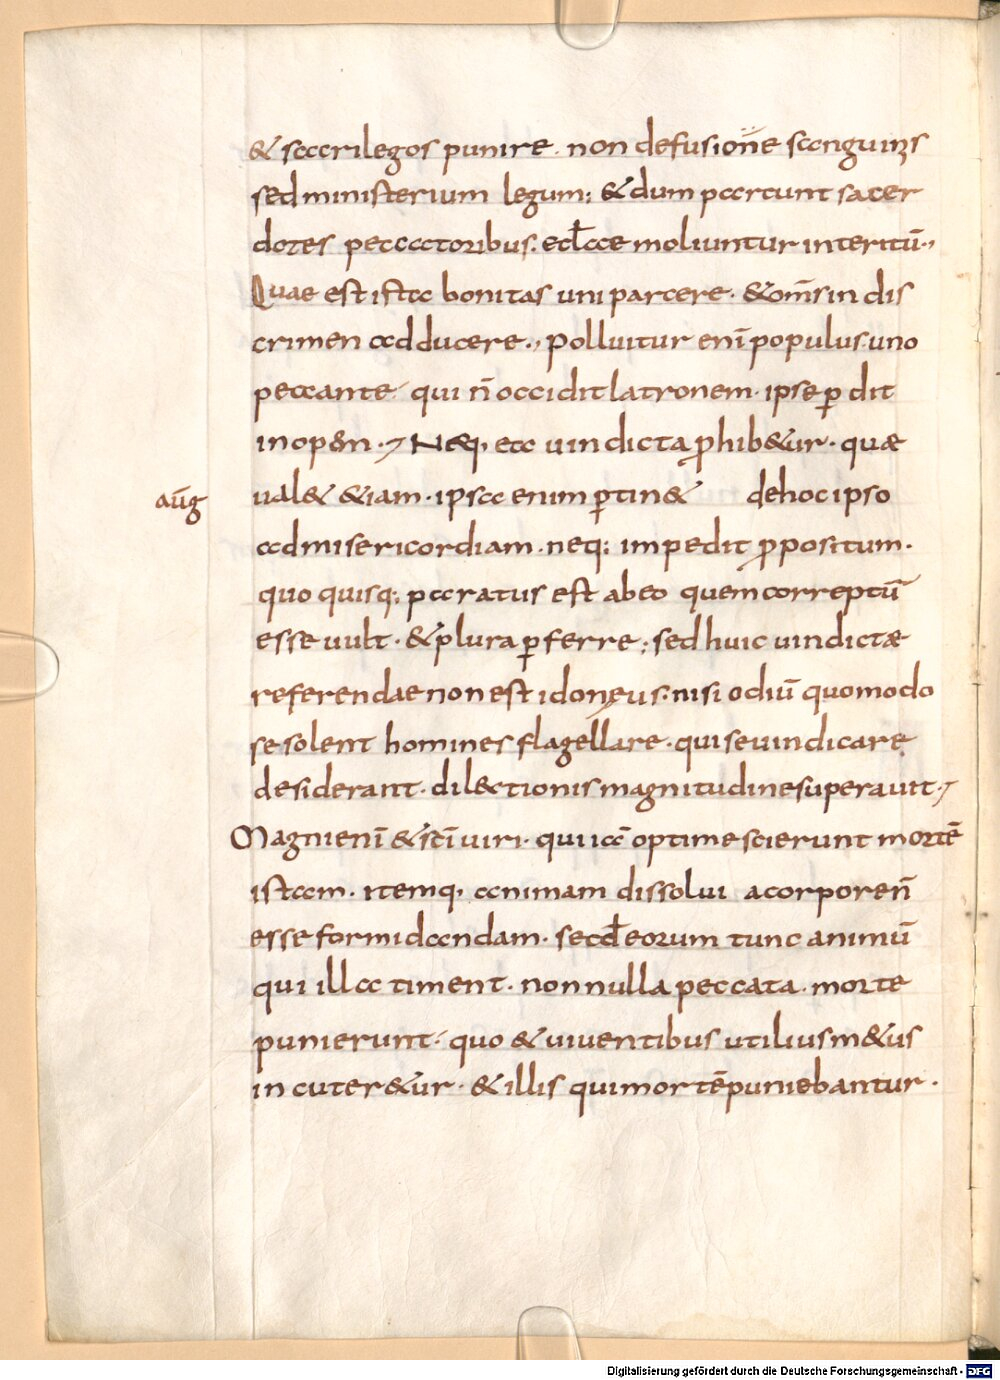 & sacrilegos punire. non defusione sanguinis
sed ministerium legum; & dum parcunt sacer
dotes peccatoribus. eclae moliuntur interitū.,
Quae est ista bonitas uni parcere. & om̄s in dis
crimen adducere., polluitur enī populus. uno
peccante. qui n̄ occidit latronem. ipse ꝑdit
inopem. Neq, ea uindicta ꝓhib&ur. quæ
aūg
ual& &iam. ipsa enim ꝑtin& dehoc ipso
ad misericordiam. neq; impedit ꝓpositum.
quo quisq; paratus est abeo quem correptū
esse uult. & plura ꝑferre; sed huic uindictæ
referendae non est idoneus. nisi odiū quomodo
se solent homines flagellare. qui se uindicare
desiderant. dilectionis magnitudine superauit.
Magni enī & scī uiri. qui iā optime scierunt mortē
istam. itemq, animam dissolui a corpore n̄
esse formidandam. secd̄ eorum tunc animū
qui illa timent. non nulla peccata. morte
punierunt. quo & uiuentibus utilius m&us
incuter&ur. & illis qui mortē puniebantur.
Digitalisierung gefördert durch die Deutsche Forschungsgemeinschaft - DFG